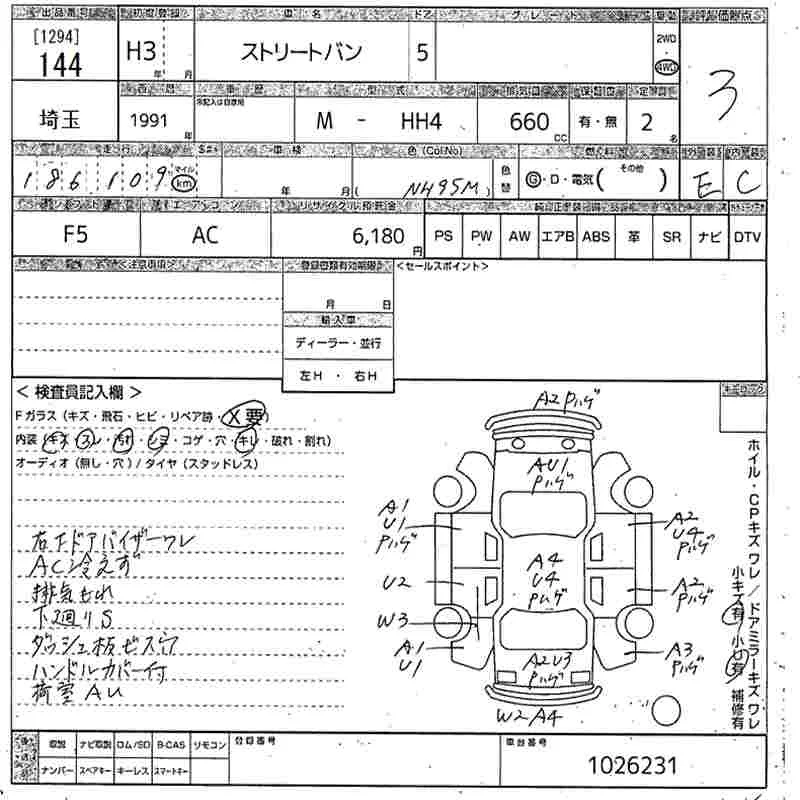 出品番号 初度登録 車名 ドア グレード 駆動 評価点
[1294]
144 H3 年 月 ストリートバン 5 2WD・4WD 3
西暦 車歴 型式 排気量 定員
埼玉 1991 年 M - HH4 660 CC 有・無 2 名
走行 車検 色(Col No) 燃料 外装 内装
186,109 マイル km 年 月 ( NH95M ) 色替 G・D・電気( その他 ) E C
シフト エアコン リサイクル預託金
F5 AC 6,180 円 PS PW AW エアB ABS 革 SR ナビ DTV
<注意事項> 登録書類有効期限 <セールスポイント>
月 日
輸入車
ディーラー・並行
左H ・ 右H
< 検査員記入欄 >
Fガラス (キズ・飛石・ヒビ・リペア跡・X要)
内装 (キズ・スレ・汚れ・シミ・コゲ・穴・キレ・破れ・割れ)
オーディオ (無し・穴) / タイヤ (スタッドレス)
右ドアバイザーワレ
AC冷えず
排気もれ
下廻りS
ダッシュ板ビス穴
ハンドルカバー付
荷室AU
キーロック
A2 Pハゲ
AU1
Pハゲ
A1
U1
Pハゲ
A2
U4
Pハゲ
A4
U4
Pハゲ
U2
A2
Pハゲ
W3
A1
U1
A3
Pハゲ
A2U3
Pハゲ
W2A4
ホイル・CPキズワレ/ドアミラーキズワレ
小キズ有 小U有 補修有
取説 ナビ取説 ロム/SD B-CAS リモコン 登録番号 車台番号
ナンバー スペアキー キーレス スマートキー 1026231